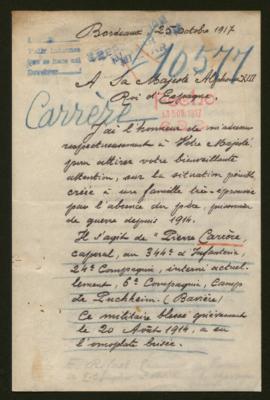 Bordeaux 25 octobre 1917
10577
A Sa Majesté Alphonse XIII
Roi d'Espagne
Carrere
J'ai l'honneur de m'adresser
respectueusement à Votre Majesté,
pour attirer votre bienveillante
attention, sur la situation pénible
créée à une famille très-éprouvée
par l'absence du père, prisonnier
de guerre depuis 1914.
Il s'agit de "Pierre Carrère,
caporal, au 344e d'Infanterie,
24e Compagnie, interné actuel-
lement, 6e Compagnie, Camp
de Puchheim. (Bavière)
Ce militaire blessé grièvement
le 20 Août 1914, a eu
l'omoplate brisée.